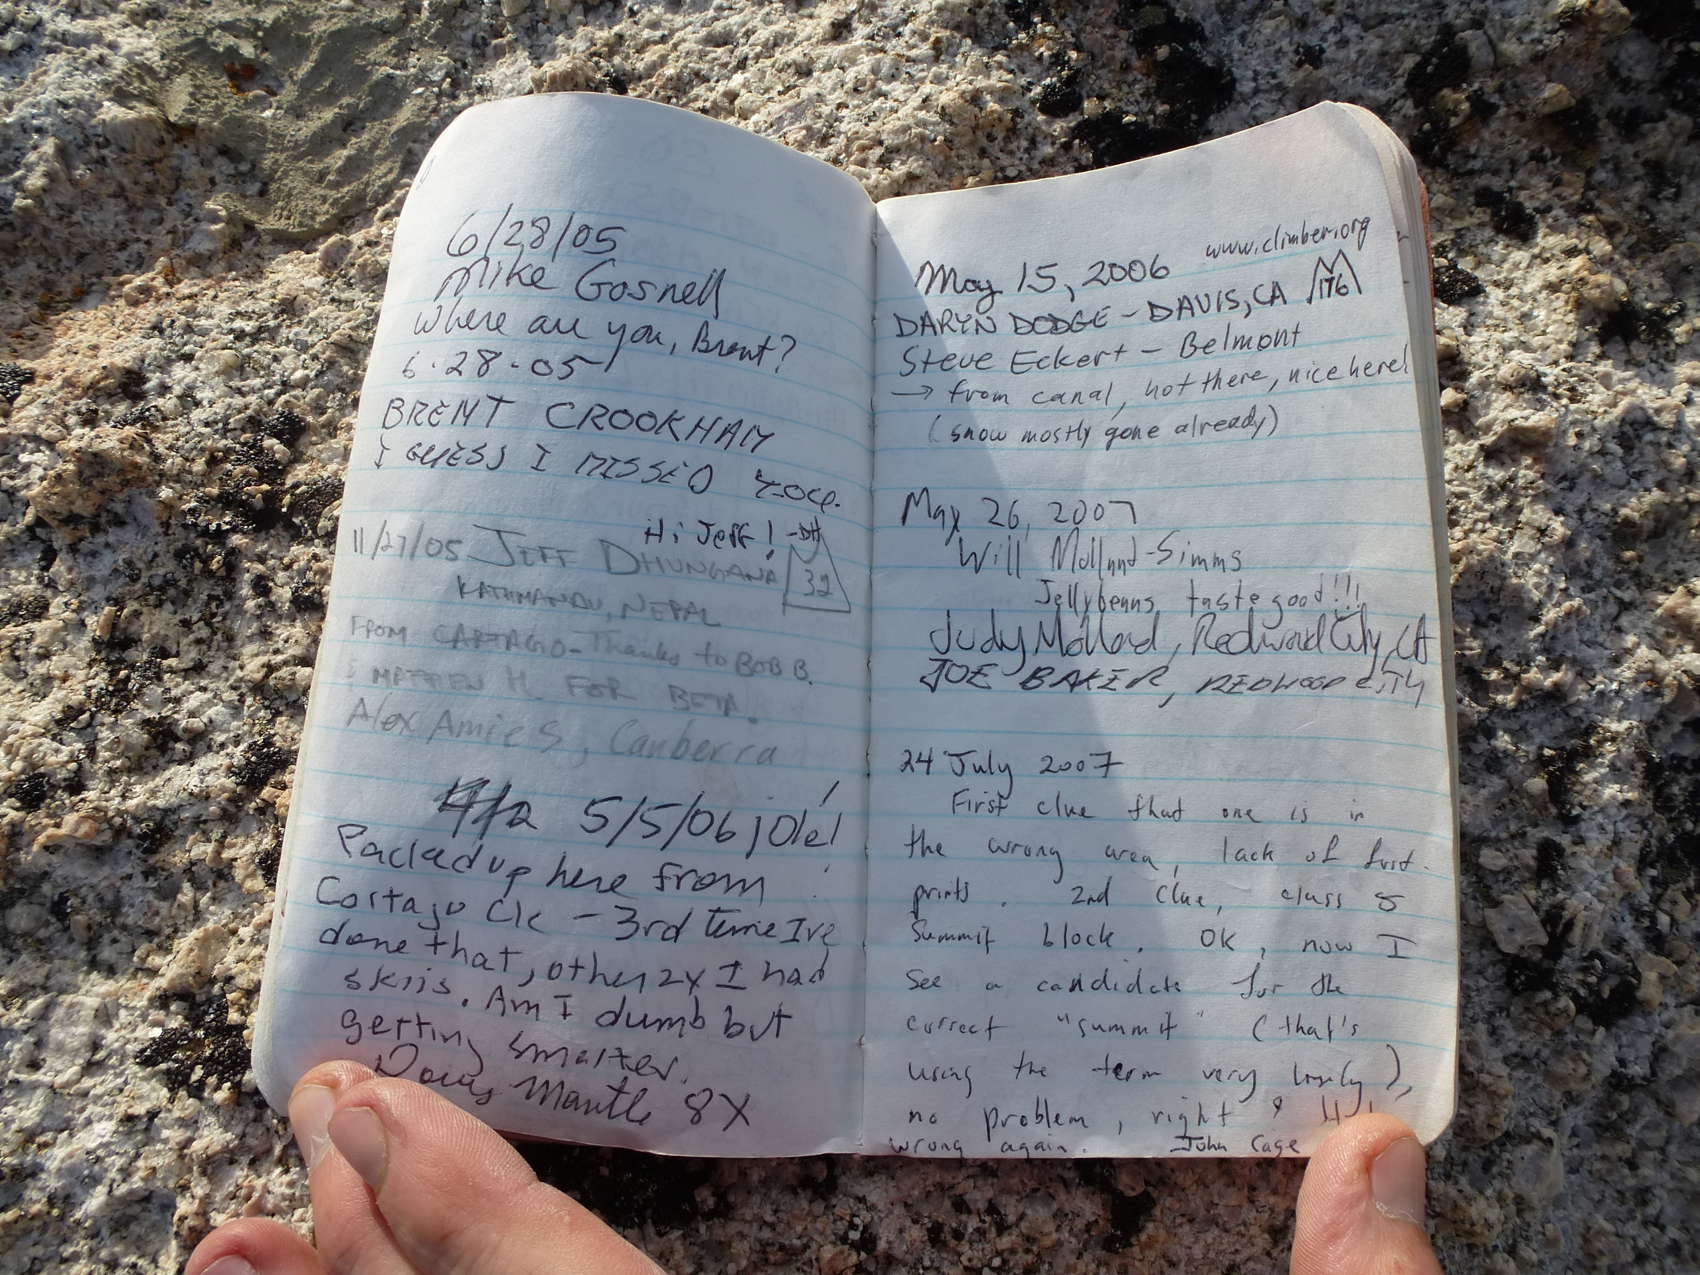 6/28/05
Mike Gosnell
Where are you, Brent?
6.28.05
BRENT CROOKHAM
I GUESS I MISSED YOU.
Hi Jeff! -DH
11/27/05 JEFF DHUNGANA 32
KATHMANDU, NEPAL
FROM CARTAGO - Thanks to BOB B.
& MATTHEW H. FOR BETA.
Alex Amies, Canberra
5/5/06 ¡Ole!
Packed up here from
Cartago Ck - 3rd time I've
done that, other 2x I had
skiis. Am I dumb but
getting smarter.
Doug Mantle 8X
www.climber.org
May 15, 2006
DARYN DODGE - DAVIS, CA 176
Steve Eckert - Belmont
→ from canal, hot there, nice here!
(snow mostly gone already)
May 26, 2007
Will Molland-Simms
Jellybeans taste good!!!
Judy Molland, Redwood City, CA
JOE BAKER, REDWOOD CITY
24 July 2007
First clue that one is in
the wrong area, lack of foot-
prints. 2nd clue, class 5
Summit block. OK, now I
see a candidate for the
correct "summit" (that's
using the term very loosely),
no problem, right?
wrong again. John Cage